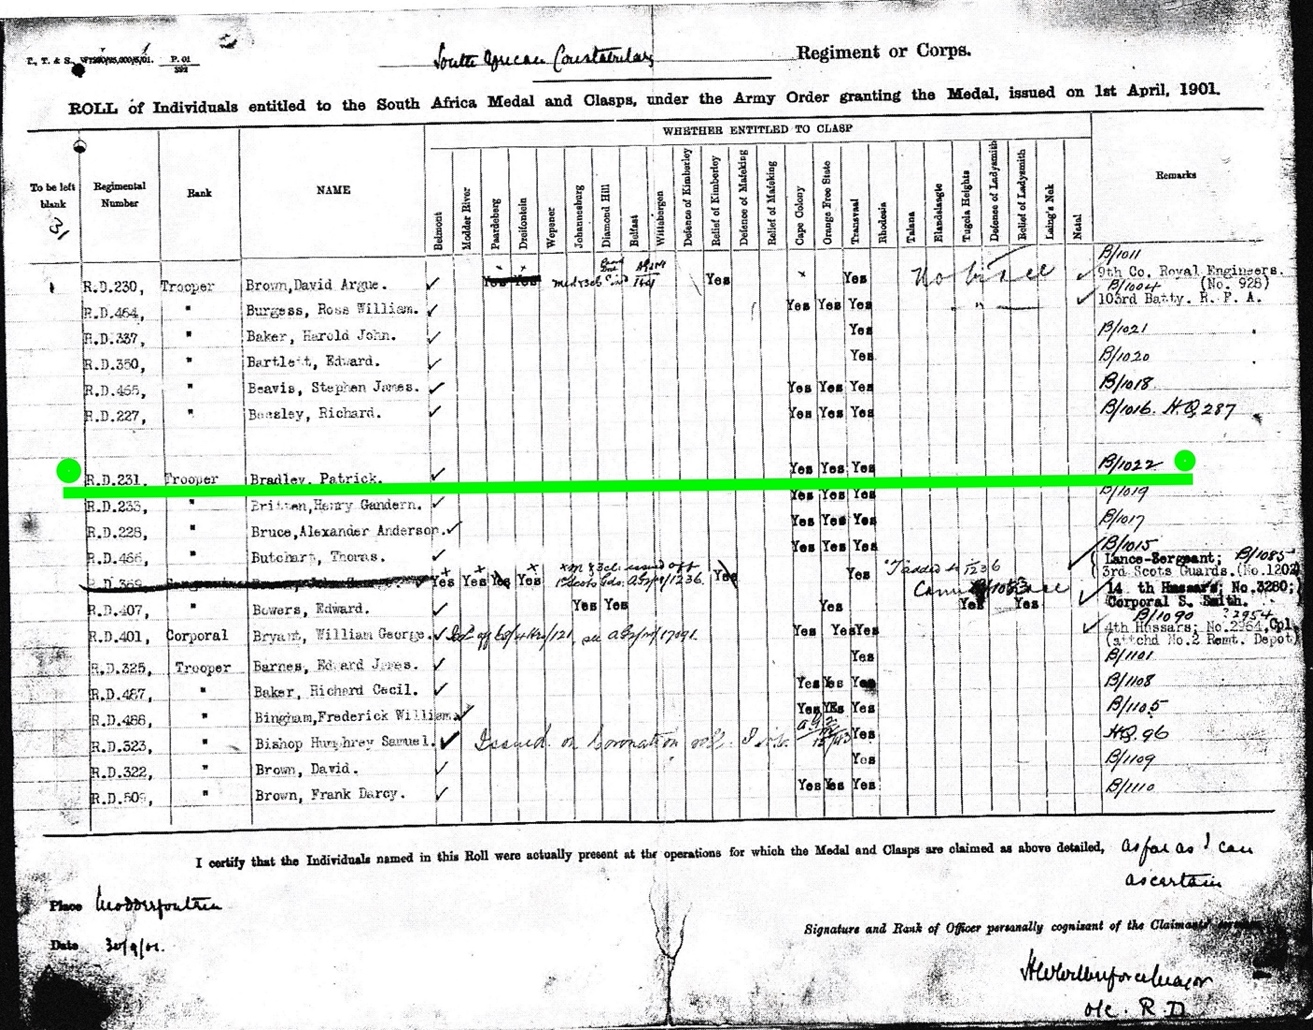 South African Constabulary Regiment or Corps.
P. 01
ROLL of Individuals entitled to the South Africa Medal and Clasps, under the Army Order granting the Medal, issued on 1st April, 1901.
WHETHER ENTITLED TO CLASP
To be left blank Regimental Number Rank NAME Belmont Modder River Paardeberg Dreifontein Wepener Johannesburg Diamond Hill Belfast Wittebergen Defence of Kimberley Relief of Kimberley Defence of Mafeking Relief of Mafeking Cape Colony Orange Free State Transvaal Rhodesia Talana Elandslaagte Tugela Heights Defence of Ladysmith Relief of Ladysmith Laing's Nek Natal Remarks
31
B/1011
R.D.230, Trooper Brown,David Argue. ✓ Yes Yes Yes Yes ✓ 9th Co. Royal Engineers.
B/1004 (No. 928)
R.D.464, " Burgess, Ross William. ✓ Yes Yes Yes ✓ 103rd Batty. R. F. A.
R.D.337, " Baker, Harold John. ✓ Yes B/1021
R.D.350, " Bartlett, Edward. ✓ Yes B/1020
R.D.465, " Beavis, Stephen James. ✓ Yes Yes Yes B/1018
R.D.227, " Beasley, Richard. ✓ Yes Yes Yes B/1016. H.Q. 287
R.D.231, Trooper Bradley, Patrick. ✓ Yes Yes Yes B/1022
" Britten,Henry Gandern. ✓ Yes Yes Yes B/1019
R.D.228, " Bruce,Alexander Anderson. ✓ Yes Yes Yes B/1017
R.D.466, " Butchart, Thomas. ✓ Yes Yes Yes B/1015
Lance-Sergeant; B/1085
R.D.369 Yes Yes Yes Yes Yes Yes 3rd Scots Guards.(No.1202)
14 th Hussars; No.3280;
R.D.407, " Bowers, Edward. ✓ Yes Yes Yes Yes Yes ✓ Corporal S. Smith.
B/1090 ?2954
R.D.401, Corporal Bryant, William George. ✓ Yes Yes Yes ✓ 4th Hussars; No.2954,Cpl.
(attchd No.2 Remt. Depot)
R.D.325, Trooper Barnes, Edward James. ✓ Yes B/1101
R.D.487, " Baker, Richard Cecil. ✓ Yes Yes Yes B/1108
R.D.488, " Bingham,Frederick William. ✓ Yes Yes Yes B/1105
R.D.323, " Bishop Humphrey Samuel. ✓ Issued on Coronation roll. Yes HQ 96
R.D.322, " Brown, David. ✓ Yes B/1109
" Brown, Frank Darcy. ✓ Yes Yes Yes B/1110
I certify that the Individuals named in this Roll were actually present at the operations for which the Medal and Clasps are claimed as above detailed, as far as I can
ascertain
Place Modderfontein
Signature and Rank of Officer personally cognizant of the Claimants'
Date 30/9/01.
o/c. R.D.